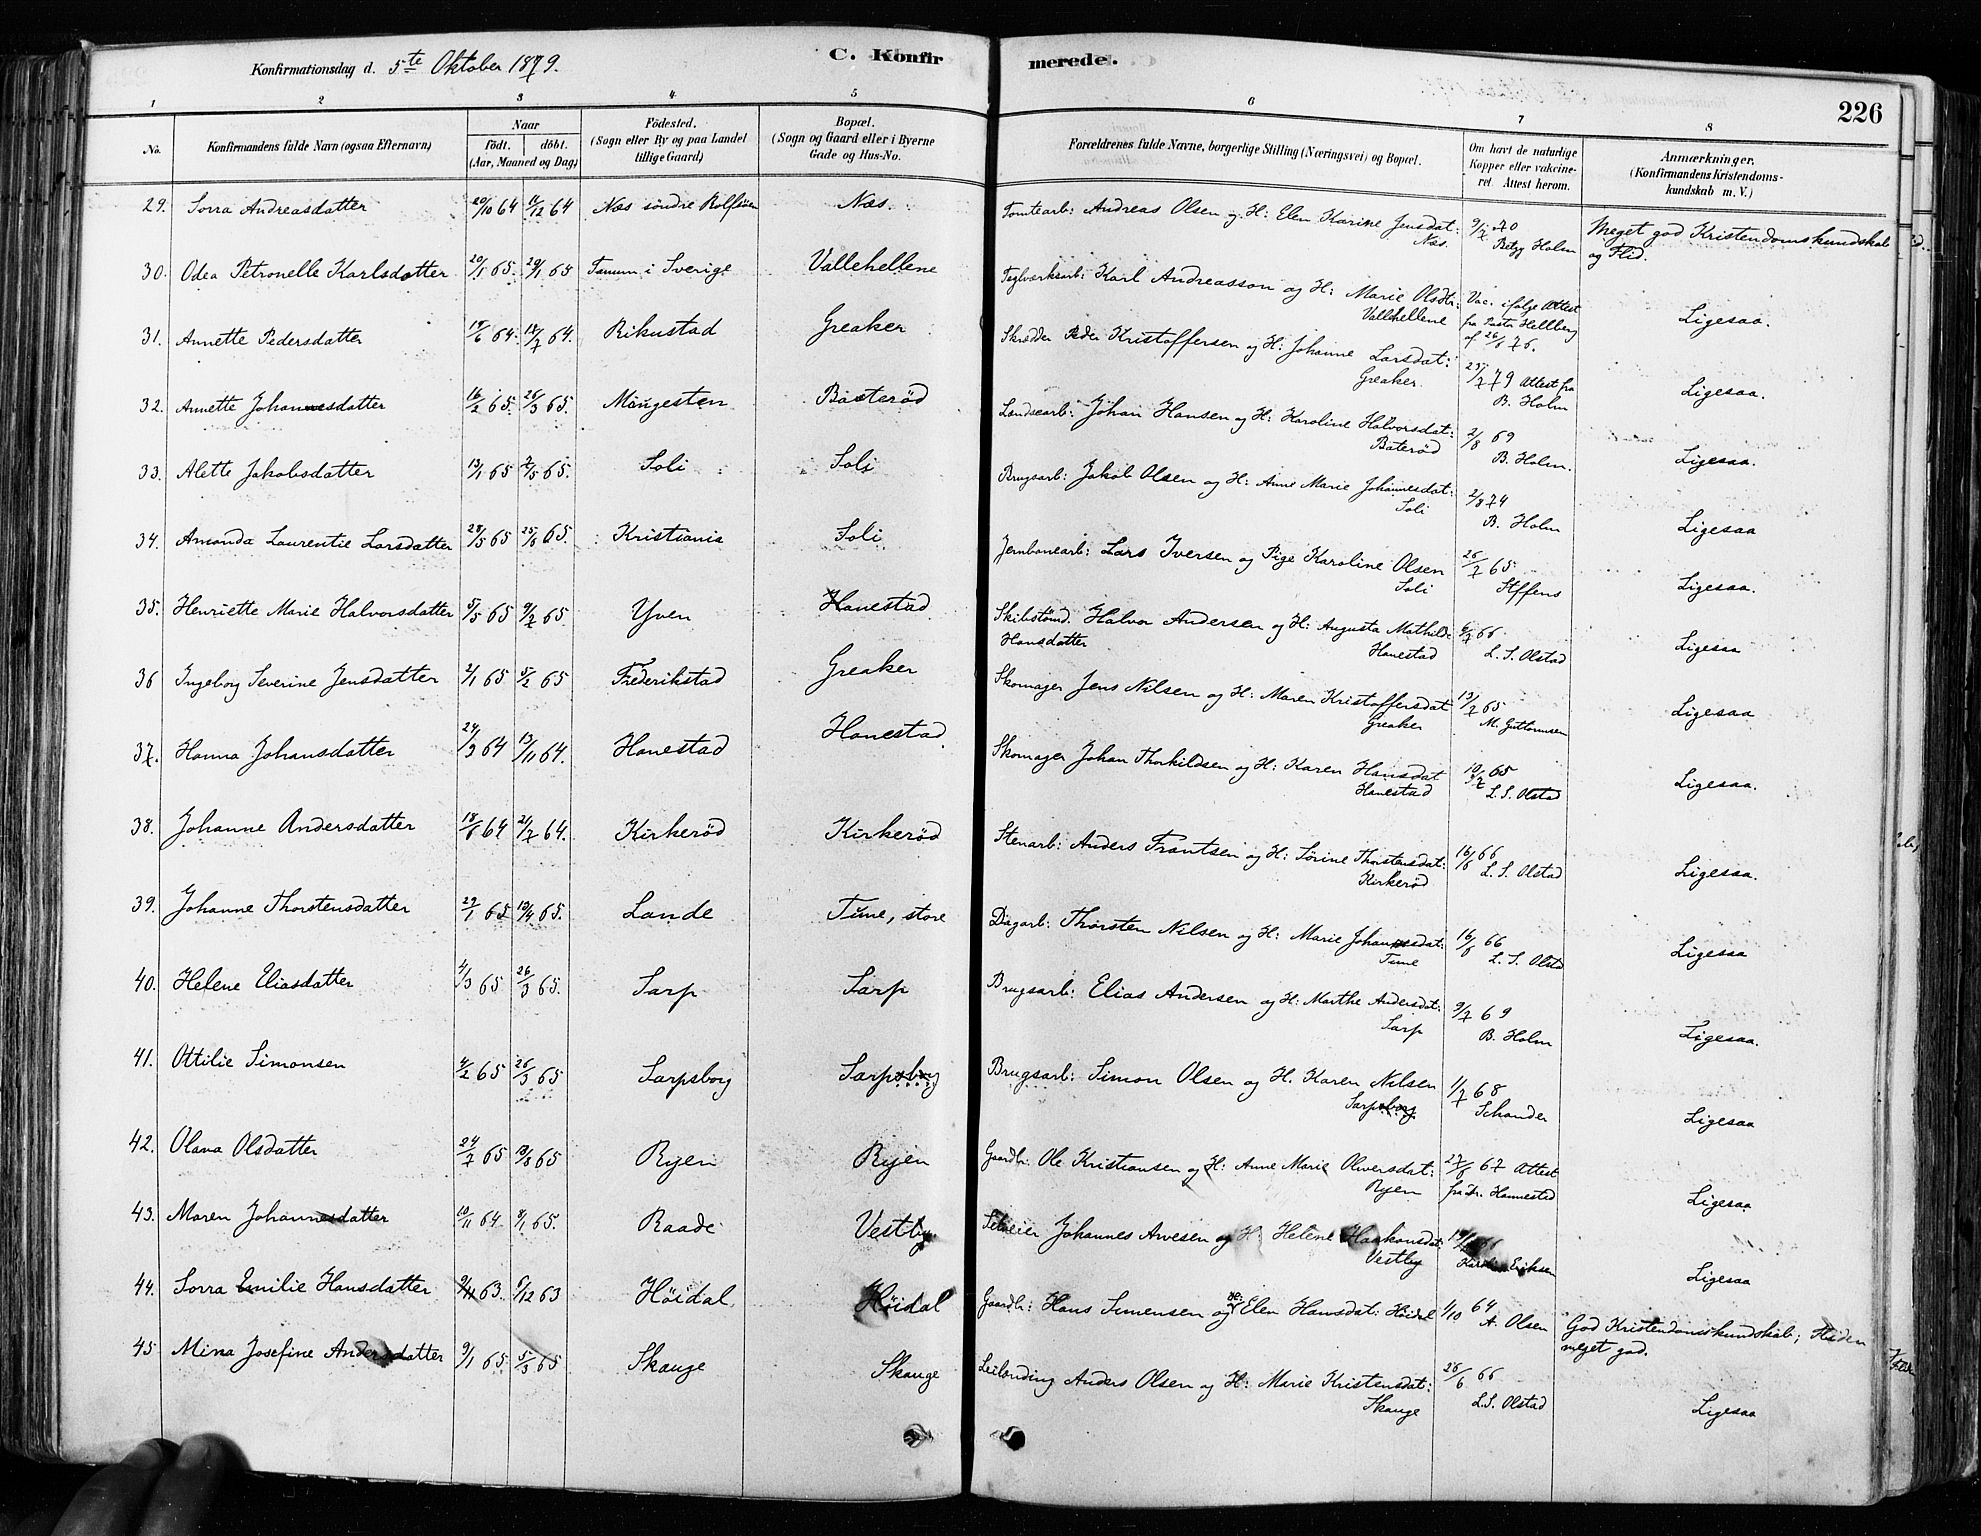 Konfirmationsdag d. 5te Oktober 1879.
C. Konfirmerede.
226
1 2 3 4 5 6 7 8
No. Konfirmandens fulde Navn (ogsaa Efternavn) Naar födt. döbt. (Aar, Maaned og Dag) Födested. (Sogn eller By og paa Landet tillige Gaard) Bopæl. (Sogn og Gaard eller i Byerne Gade og Hus-No. Forældrenes fulde Navne, borgerlige Stilling (Næringsvei) og Bopæl. Om havt de naturlige Kopper eller vakcineret. Attest herom. Anmærkninger. (Konfirmandens Kristendomskundskab m. V.)
29. Sorra Andreasdatter 20/10 64 12/64 Næs söndre Rolfsöen Næs. Tomtearb: Andreas Olsen og H: Elen Karine Jensdat: Næs. 9/7 70 Betzy Holm Meget god Kristendomskundskab og Flid.
30. Odea Petronelle Karlsdatter 20/1 65. 29/1 65 Tanum i Sverige Vallehellene Teglværksarb: Karl Andreasson og H: Marie Olsdtr: Vallehellene Vac. ifølge Attest fra Pastor Hellberg af 26/6 76. Ligesaa.
31. Annette Pedersdatter 19/6 64. 18/7 64. Rikustad Greaker Skrædder Peder Kristoffersen og H: Johanne Larsdat: Greaker. 25/7 79 Attest fra B. Holm Ligesaa.
32. Annette Johannesdatter 16/2 65. 26/3 65. Mingesten Baaterød Landsearb: Johan Hansen og H: Karoline Halvorsdat: Baterød 2/8 69 B. Holm. Ligesaa.
33. Alette Jakobsdatter 13/1 65 7/5 65. Soli Soli Brugsarb: Jakob Olsen og H: Anne Marie Johannesdat: Soli 2/8 74 B. Holm Ligesaa
34. Amanda Laurentie Larsdatter 28/5 65 25/6 65. Kristiania Soli Jernbanearb: Lars Iversen og Pige Karoline Olsen Soli 26/7 65 Steffens Ligesaa.
35. Henriette Marie Halvorsdatter 5/5 65 9/7 65. Yven Hanestad Skibstømd. Halvor Andersen og H: Augusta Mathilde Hansdatter Hanestad 6/7 66 L. S. Olstad Ligesaa
36 Ingeborg Severine Jensdatter 2/1 65 5/2 65 Frederikstad Greaker Skomager Jens Nilsen og H: Maren Kristoffersdat Greaker 13/7 65 M. Guttormsen Ligesaa
37. Hanna Johansdatter 24/3 64 13/11 64. Hanestad Hanestad. Skomager Johan Thorkildsen og H: Karen Hansdat Hanestad 10/7 65 L. S. Olstad Ligesaa.
38. Johanne Andersdatter 18/6 64 21/7 64. Kirkerød Kirkerød Stenarb: Anders Frantsen og H: Sørine Thorstensdat: Kirkerød 16/6 66 L. S. Olstad Ligesaa.
39. Johanne Thorstensdatter 29/1 65 10/4 65. Lande Tune, store Dagarb: Thorsten Nilsen og H: Marie Johannesdat: Tune 16/6 66 L. S. Olstad Ligesaa
40. Helene Eliasdatter 4/3 65 26/3 65. Sarp Sarp Brugsarb: Elias Andersen og H: Marthe Andersdat: Sarp 9/7 69 B. Holm Ligesaa.
41. Ottilie Simonsen 4/2 65 26/3 65 Sarpsborg Sarpsborg Brugsarb: Simon Olsen og H. Karen Nilsen Sarpsborg 1/7 68 Schander Ligesaa
42. Olava Olsdatter 24/7 65 13/8 65 Ryen Ryen Gaardb: Ole Kristiansen og H: Anne Marie Oliversdat: Ryen 27/6 67 Attest fra Dr. Hannestad Ligesaa
43. Maren Johannesdatter 10/11 64. 8/1 65. Raade Vestby Selveier Johannes Arvesen og H: Helene Haakonsdat: Vestby 66 Eriksen Ligesaa
44. Sorra Emilie Hansdatter 9/11 63. 5/12 63 Höidal Höidal Gaardb: Hans Simensen og Elen Hansdat: Höidal 1/10 64 A. Olsen God Kristendomskundskab; Fliden meget god.
45 Mina Josefine Andersdatter 9/1 65. 5/3 65 Skauge Skauge Leilænding Anders Olsen og H: Marie Kristensdat: Skauge 26/6 66 L. S. Olstad Ligesaa